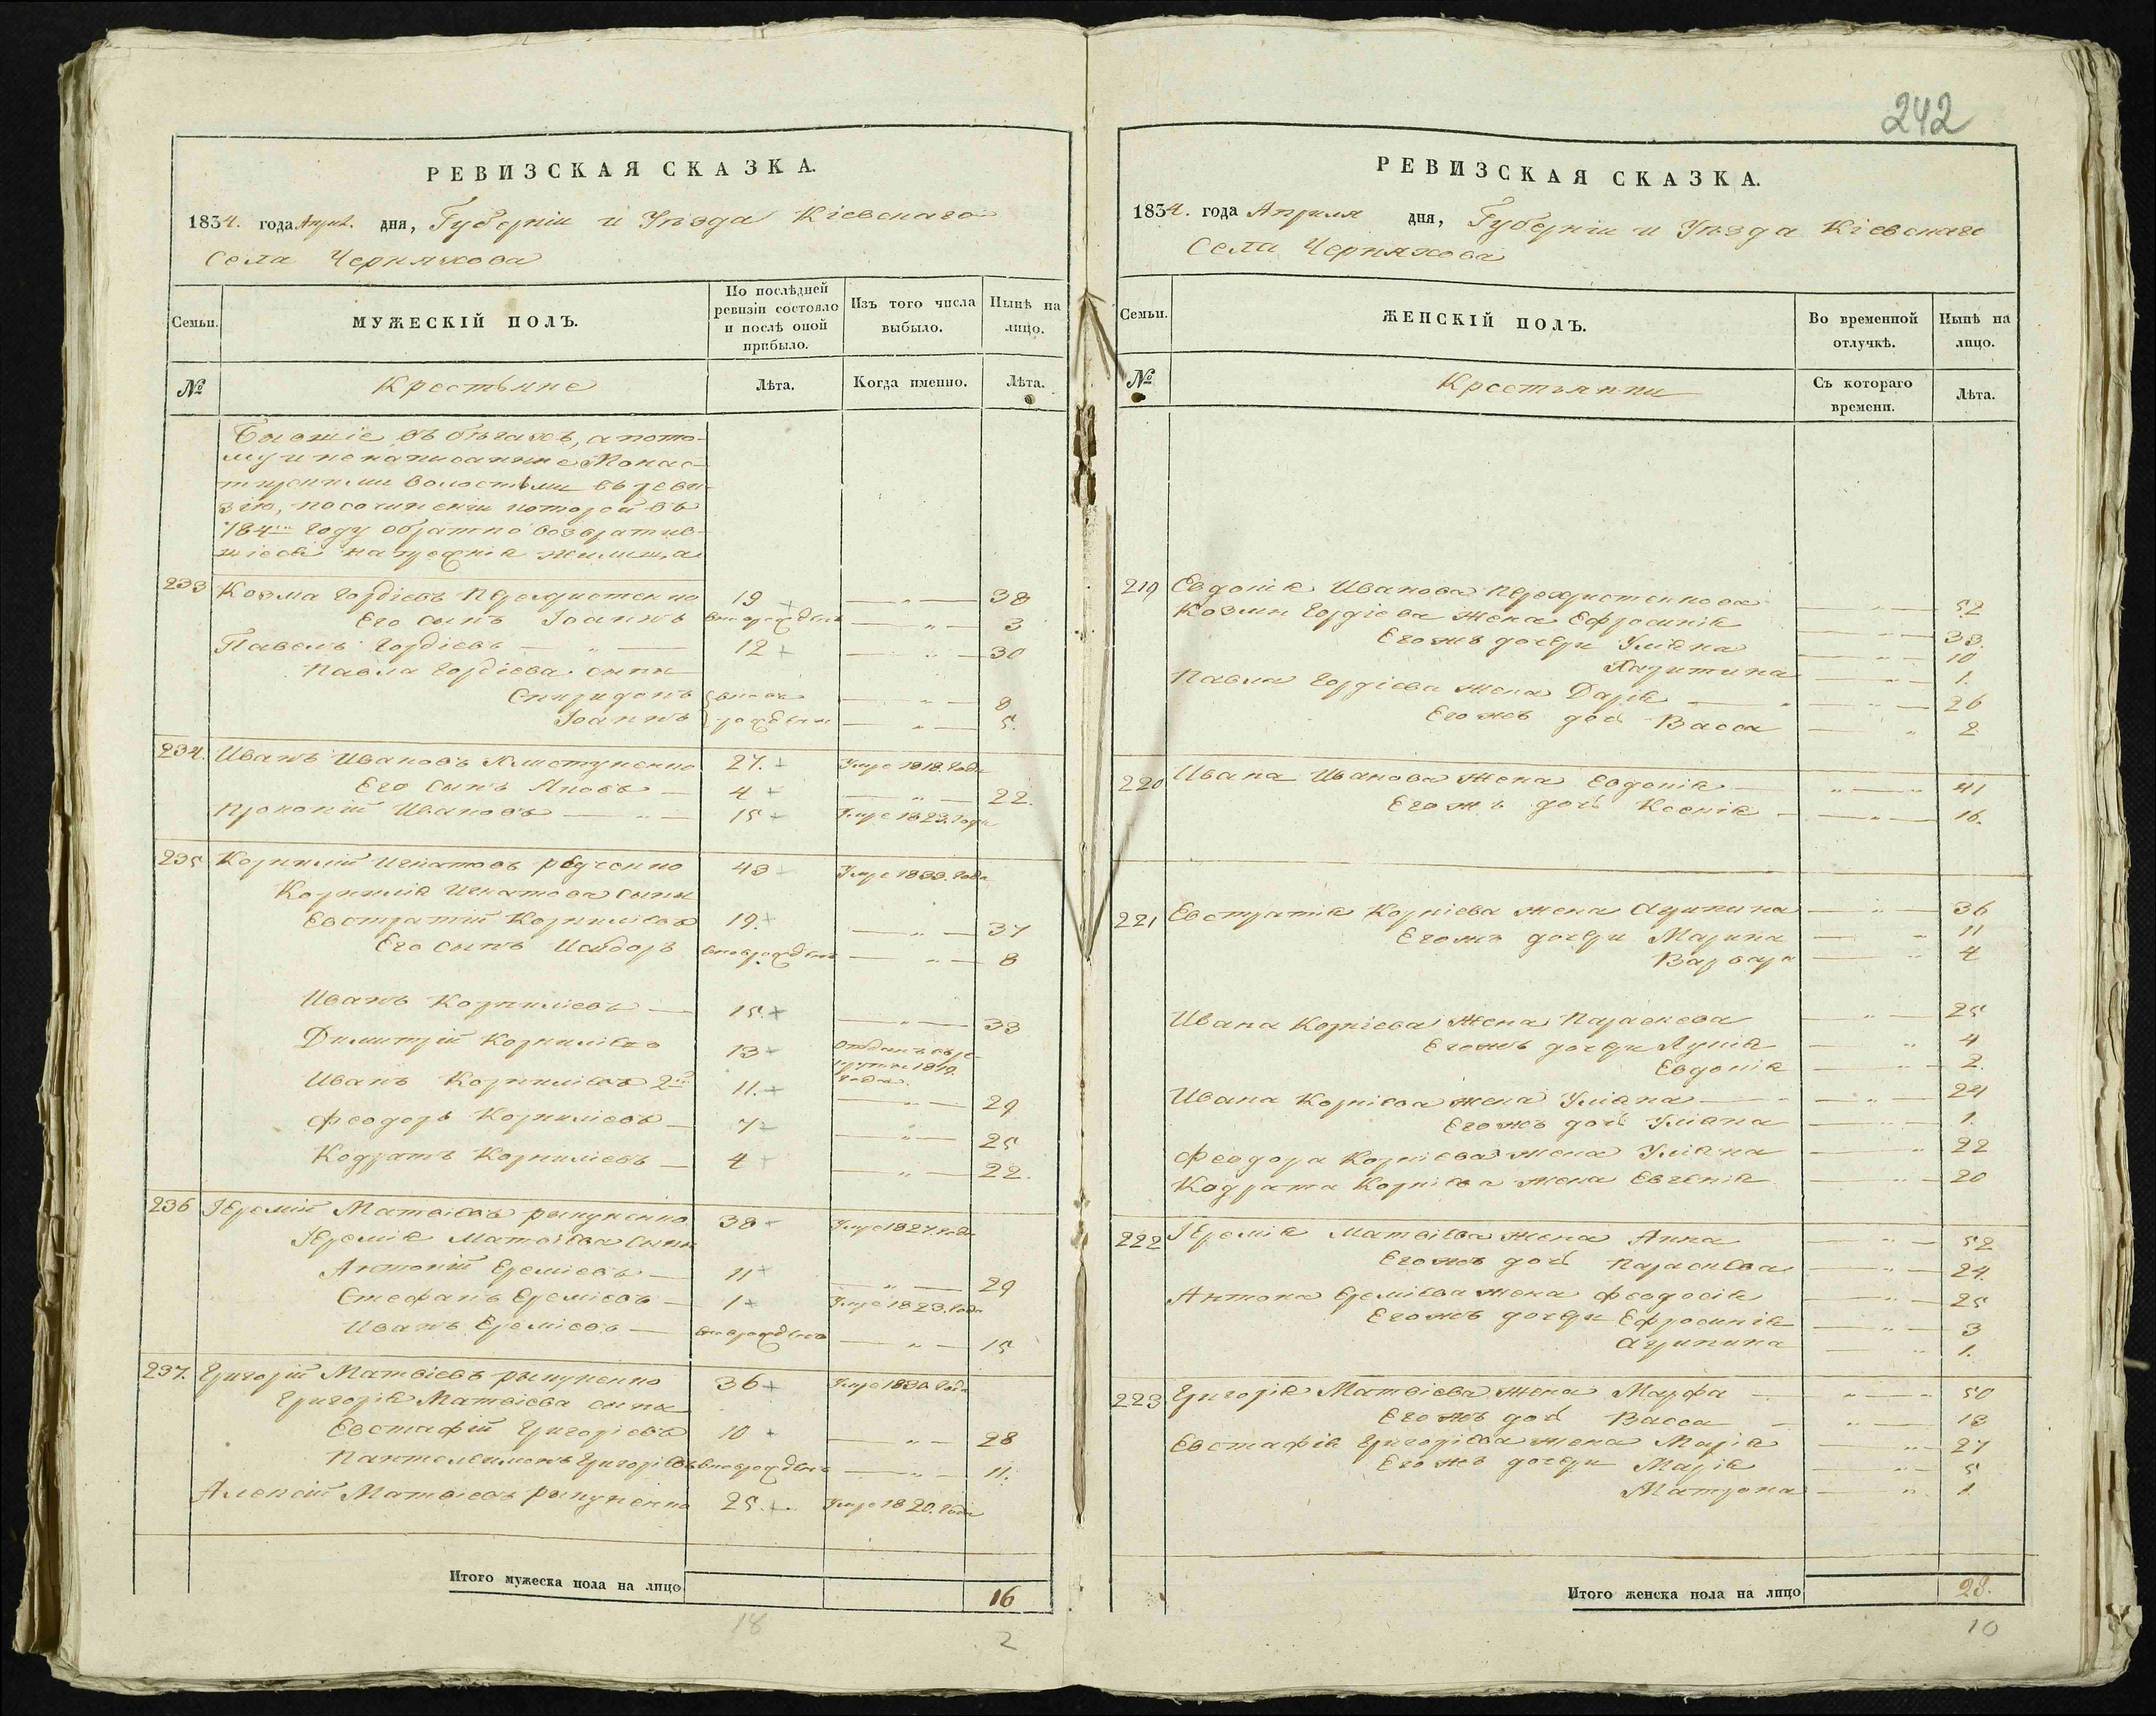 242
РЕВИЗСКАЯ СКАЗКА.
1834. года Апрѣл. дня, Губерніи и Уѣзда Кіевскаго
Села Черняхова
Семьи.
МУЖЕСКІЙ ПОЛЪ.
По послѣдней ревизіи состояло и послѣ оной прибыло.
Изъ того числа выбыло.
Нынѣ на лицо.
№
Крестьяне
Лѣта.
Когда именно.
Лѣта.
Бывшіе въ бѣгахъ, а пото-
му и не написанные Монас-
тирскими волостьми въ реви-
зію, по сочиненіи которой въ
году обратно возвратив-
шіеся на прежнія жилища
233 Козма Гордіевъ 19 — " — 38
Его сынъ Іоаннъ вновьрожденъ — " — 3
Павелъ Гордіевъ — " — 12 — " — 30
Павла Гордіева сыны
Спиридонъ вновь — " — 8
Іоаннъ рождены — " — 5.
234. Иванъ Ивановъ 27. Умре 1818. года
Его сынъ Яковъ — 4 — " — 22.
Прокопій Ивановъ — " — 15 Умре 1823. года
235 Корнилій Игнатовъ 43 Умре 1833. года
Корнилія Игнатова сыны
Евстратій Корниліевъ 19. — " — 37
Его сынъ Исидоръ вновьрожденъ — " — 8
Иванъ Корниліевъ — 15. — " — 33
Димитрій Корниліевъ 13 Отданъ въ ре-
круты 1819.
года.
Иванъ Корниліевъ 2й 11. — " — 29
Феодоръ Корниліевъ — 7 — " — 25
Кодратъ Корниліевъ — 4 — " — 22.
236 Іеремій Матвіевъ рыпуненко 38 Умре 1827. года
Іеремія Матвіева сыны
Антоній Ереміевъ — 11 — " — 29
Стефанъ Ереміевъ — 1 Умре 1823. года
Иванъ Ереміевъ — вновьрожденъ — " — 15
237. Григорій Матвіевъ рыпуненко 36 Умре 1830 года
Григорія Матвіева сыны
Евстафій Григоріевъ 10 — " — 28
Пантелеимонъ Григоріевъ вновьрожденъ — " — 11.
Алексій Матвіевъ рыпуненко 25. Умре 1820. года
Итого мужеска пола на лицо 16
18
2
РЕВИЗСКАЯ СКАЗКА.
1834. года Апрѣля дня, Губерніи и Уѣзда Кіевскаго
Села Черняхова
Семьи.
ЖЕНСКІЙ ПОЛЪ.
Во временной отлучкѣ.
Нынѣ на лицо.
№
Крестьянки
Съ котораго времени.
Лѣта.
219 Евдокія Иванова — " — 52
Козмы Гордіева жена Ефросинія — " — 33.
Егожъ дочери Уліяна — " — 10
Харитина — " — 1.
Павла Гордіева жена Дарія — " — 26
Егожъ дочь Васса — " 2
220 Ивана Иванова жена Евдокія — " — 41
Егожъ дочь Ксенія — " — 16.
221 Евстратія Корніева жена Агрипина — " — 36
Егожъ дочери Марина — " 11
Варвара — " 4
Ивана Корніева жена Параскева — " — 25
Егожъ дочери — " 4
Евдокія — " — 2.
Ивана Корніева жена Уліяна — " — 24
Егожъ дочь Уліяна — " — 1.
Феодора Корніева жена Уліяна — " 22
Кодрата Корніева жена Евгенія — " — 20
222 Іеремія Матвіева жена Анна — " — 52
Егожъ дочь Параскева — " — 24.
Антона Ереміева жена Феодосія — " — 25
Егожъ дочери Ефросинія — " — 3
Агрипина — " 1.
223 Григорія Матвіева жена Марфа — " — 50
Егожъ дочь Васса — " — 18
Евстафія Григоріева жена Марія — " — 27
Егожъ дочери Марія — " — 5
Матрона — " 1
Итого женска пола на лицо 28.
10